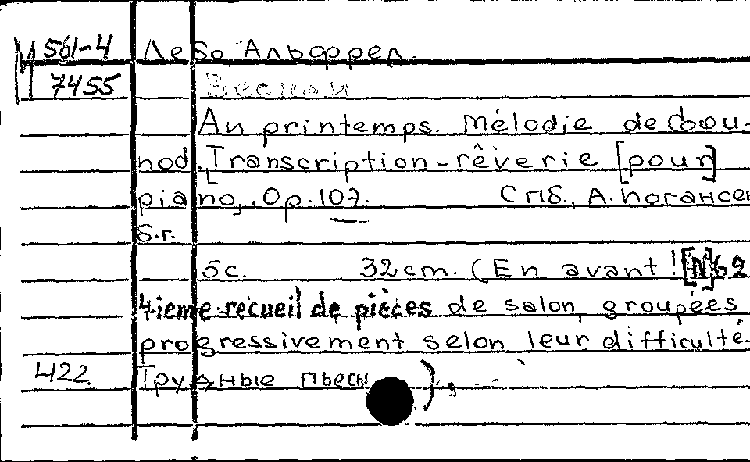 М 561-4 Лебо Альфред.
7455 Весною
An printemps. Mélodie de Gou-
nod. Transcription-rêverie [pour]
piano, Op. 107. СПб., А. Иогансен
s.г.
5с. 32 cm. (En avant! [№]62
4ieme recueil de pièces de salon, groupées
progressivement selon leur difficulté.
422 Трудные пьесы).